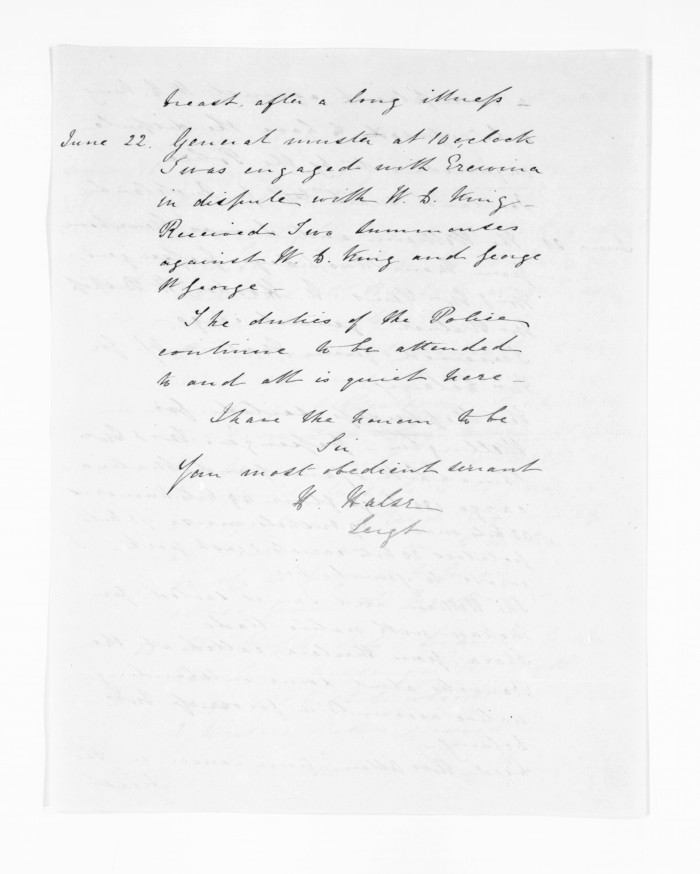 breast after a long illness -
June 22. General muster at 10 o,clock
I was engaged with Erewina
in dispute with W. D. King -
Received Two Summonses
against W. D. King and George
W George -
The duties of the Police
continue to be attended
to and all is quiet here -
I have the honour to be
Sir
Your most obedient servant
H. Halse
Sergt